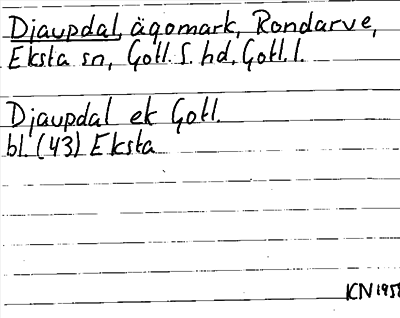 Djaupdal, ägomark, Rondarve,
Eksta sn, Gotl. S. hd, Gotl. l.
Djaupdal ek Gotl.
bl. (43) Eksta
KN 1958